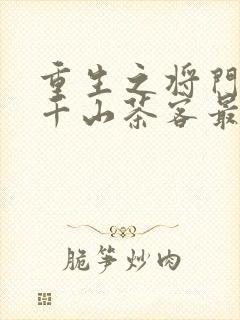 重生之将门
千山茶客最
脆笋炒肉